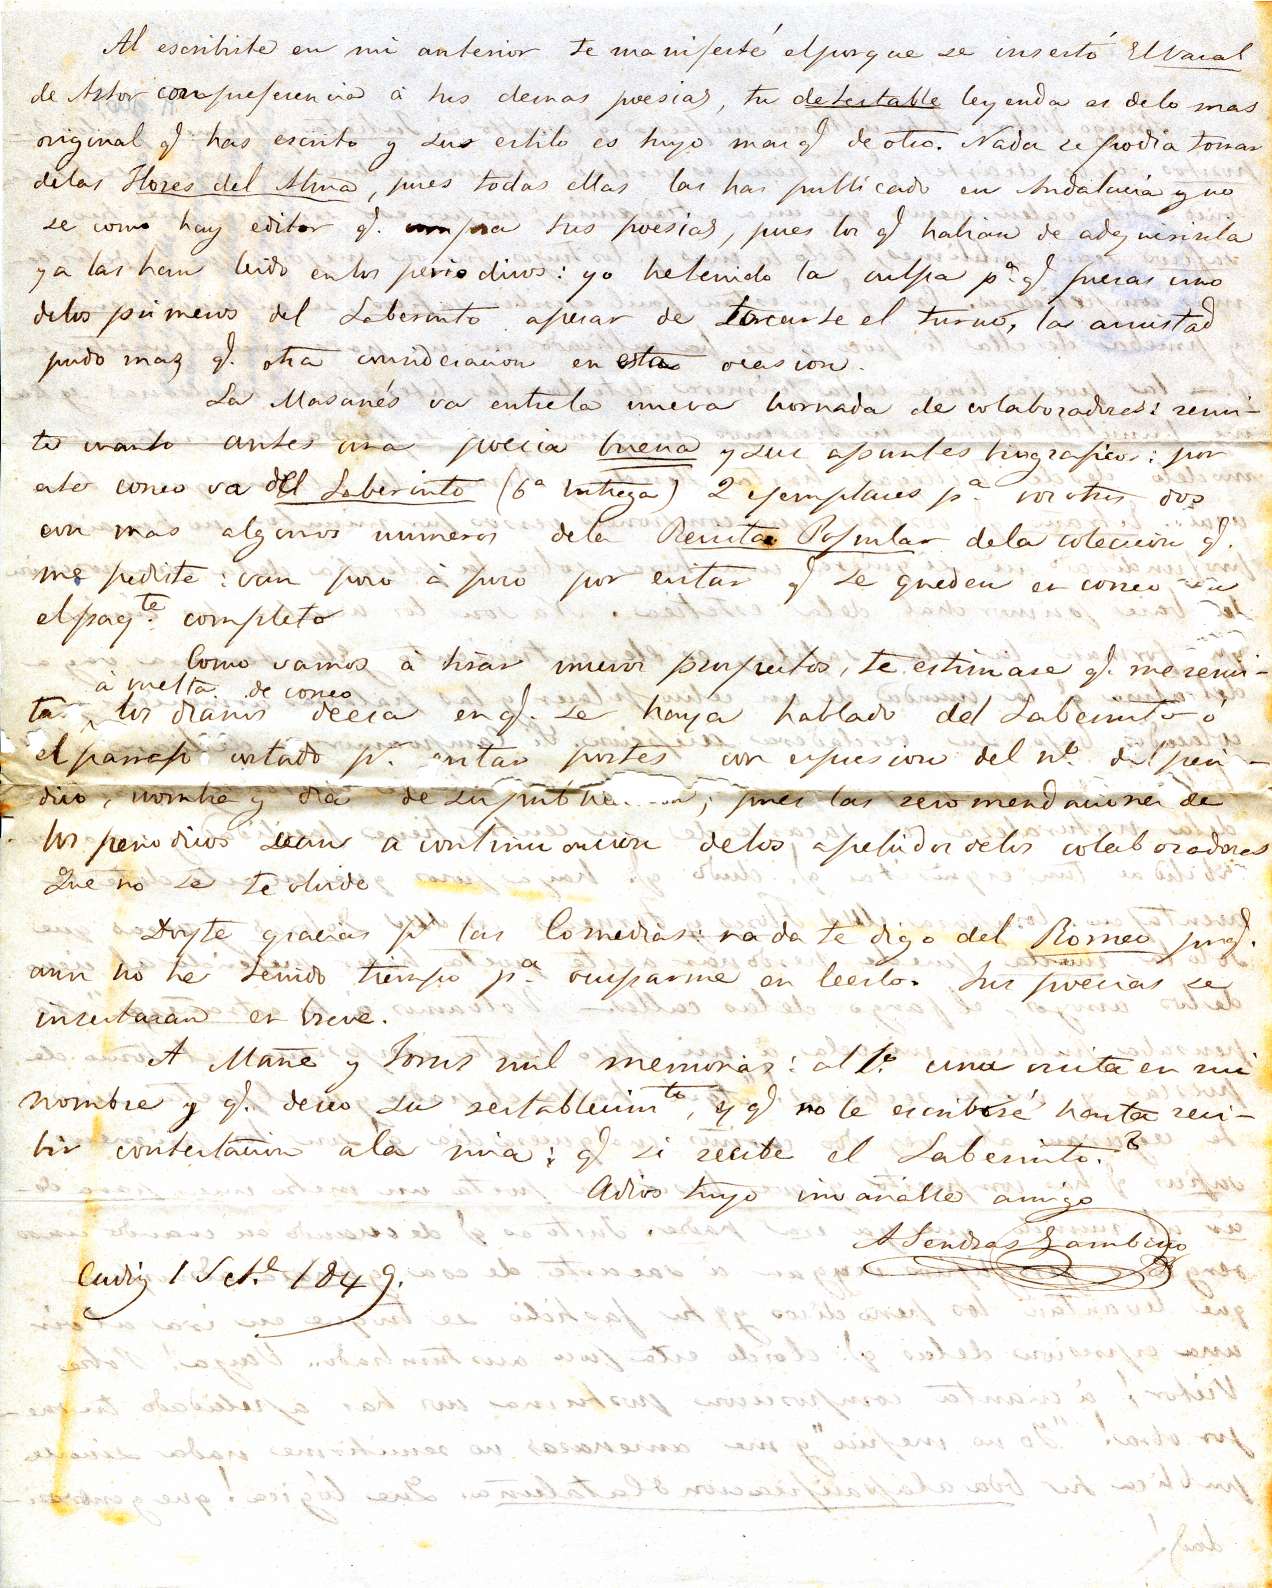 Al escribirte en mi anterior te manifesté elporque se insertó El Varal
de Astor con preferencia á tus demas poesias, tu detestable leyenda es delo mas
original q.e has escrito y su estilo es tuyo mas q.e de otro. Nada se podia tomar
delas Flores del Alma, pues todas ellas las has publicado en Andalucia y no
se como hay editor q.e compra tus poesias, pues los q.e habian de adquirirla
ya las han leido enlos periodicos: yo hetenido la culpa p.a q.e fueras uno
delos primeros del Laberinto apesar de tocarle el turno, la amistad
pudo mas q.e otra consideracion en esta ocasion.
La Masanés va entrela nueva hornada de colaboradores: remi-
te cuanto antes una poecia buena y sus apuntes biograficos: por
este correo va del Laberinto (6ª Entrega) 2 ejemplares p.a vosotros dos
con mas algunos numeros dela Revista Popular dela coleccion q.e
me pediste: van poco á poco por evitar q.e se queden en correo
elpaq.te completo
Como vamos á tirar nuevos prospectos, te estimase q.e meremi-
á vuelta de correo
ta los diarios deesa en q.e se haya hablado del Laberinto ó
el parrafo cortado p.a evitar portes con espresion del n.o del peri-
dico, nombre y dia de su publicacion, pues las recomendaciones de
los periodicos van a continuacion delos apellidos delos colaboradores
Que no se te olvide
Doyte gracias p.r las Comedias: nada te digo del Romeo porq.e
aun no he tenido tiempo p.a ocuparme en leerlo. Tus poecias se
insertaran en breve.
A Mañe y Torres mil memorias: al 1.o una visita en mi
nombre y q.e deseo su restablecim.to, y q.e no le escribiré hasta reci-
bir contestacion ala mia: q.e si recibe el Laberinto.
Adios tuyo invariable amigo
A Sendras Gambino
Cadiz 1 Set.e 1849.